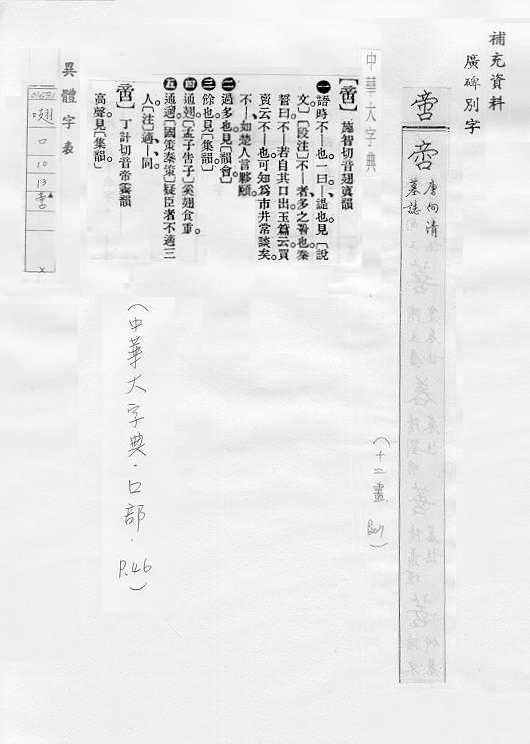 補充資料
廣碑別字
啻
啻
唐向清
墓誌
（十二畫
中華大字典
〔啻〕 施智切音翅寘韻
一語時不｜也一曰｜諟也見〔說
文〕〔段注〕不｜者多之䛐也秦
誓曰不｜若自其口出玉篇云買
賣云不｜也可知爲市井常談矣
不｜如楚人言夥頤
二過多也見〔韻會〕
三餘也見〔集韻〕
四通翅〔孟子告子〕奚翅食重
五通適〔國策秦策〕疑臣者不適三
人〔注〕適、｜、同
〔啻〕 丁計切音帝霽韻
高聲見〔集韻〕
（中華大字典．口部．P.46）
異體字表
翅
口
10
13
啻
x